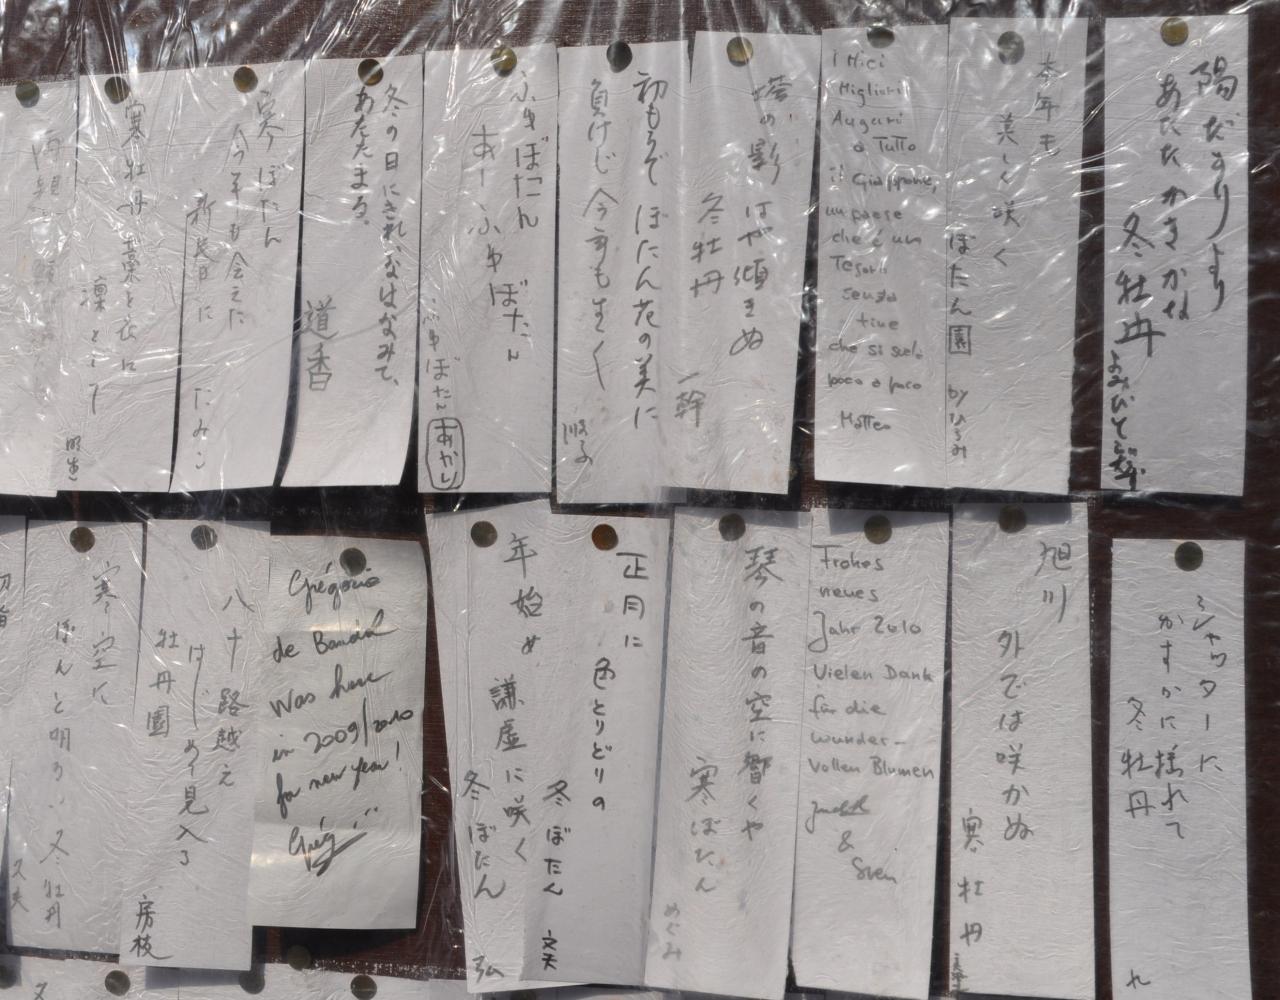 陽だまりより
あたたかきかな
冬牡丹
本年も
美しく咲く
ぼたん園
byひろみ
I Miei
Migliori
Auguri
a Tutto
il Giappone,
un paese
che è un
Tesoro
senza
fine
che si svela
poco a poco
Matteo
塔の影
はや傾きぬ
冬牡丹
一幹
初もうで ぼたん花の美に
負けじ今年も生く
順子
ふゆぼたん
あーふゆ
ぼたん
ふゆぼたん
あかし
冬の日にきれいなはなみて、
あたたまる。
道香
寒ぼたん
今年も会えた
新春に
たみこ
寒牡丹藁を衣に
凛として
明生
シャッターに
かすかに揺れて
冬牡丹
旭川
外では咲かぬ
寒牡丹
Frohes
neues
Jahr 2010
Vielen Dank
für die
wunder-
vollen Blumen
Judith
&
Sven
琴の音の空に響くや
寒ぼたん
めぐみ
正月に
色とりどりの
冬ぼたん
年始め
謙虚に咲く
冬ぼたん
弘
Grégorie
de
Was here
in 2009/2010
for new year!
Grég
八十路越え
はじめて見入る
牡丹園
房枝
寒空に
ぽんと明るい
冬牡丹
久夫